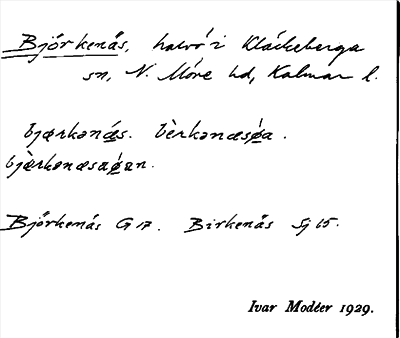 Björkenäs, halvö i Kläckeberga
sn, N. Möre hd, Kalmar l.
bjærkənǽs. bèrkənæsø̀a.
bjæ̀rkənæsaøan.
Björkenäs G 17. Birkenäs Sj 15.
Ivar Modéer 1929.